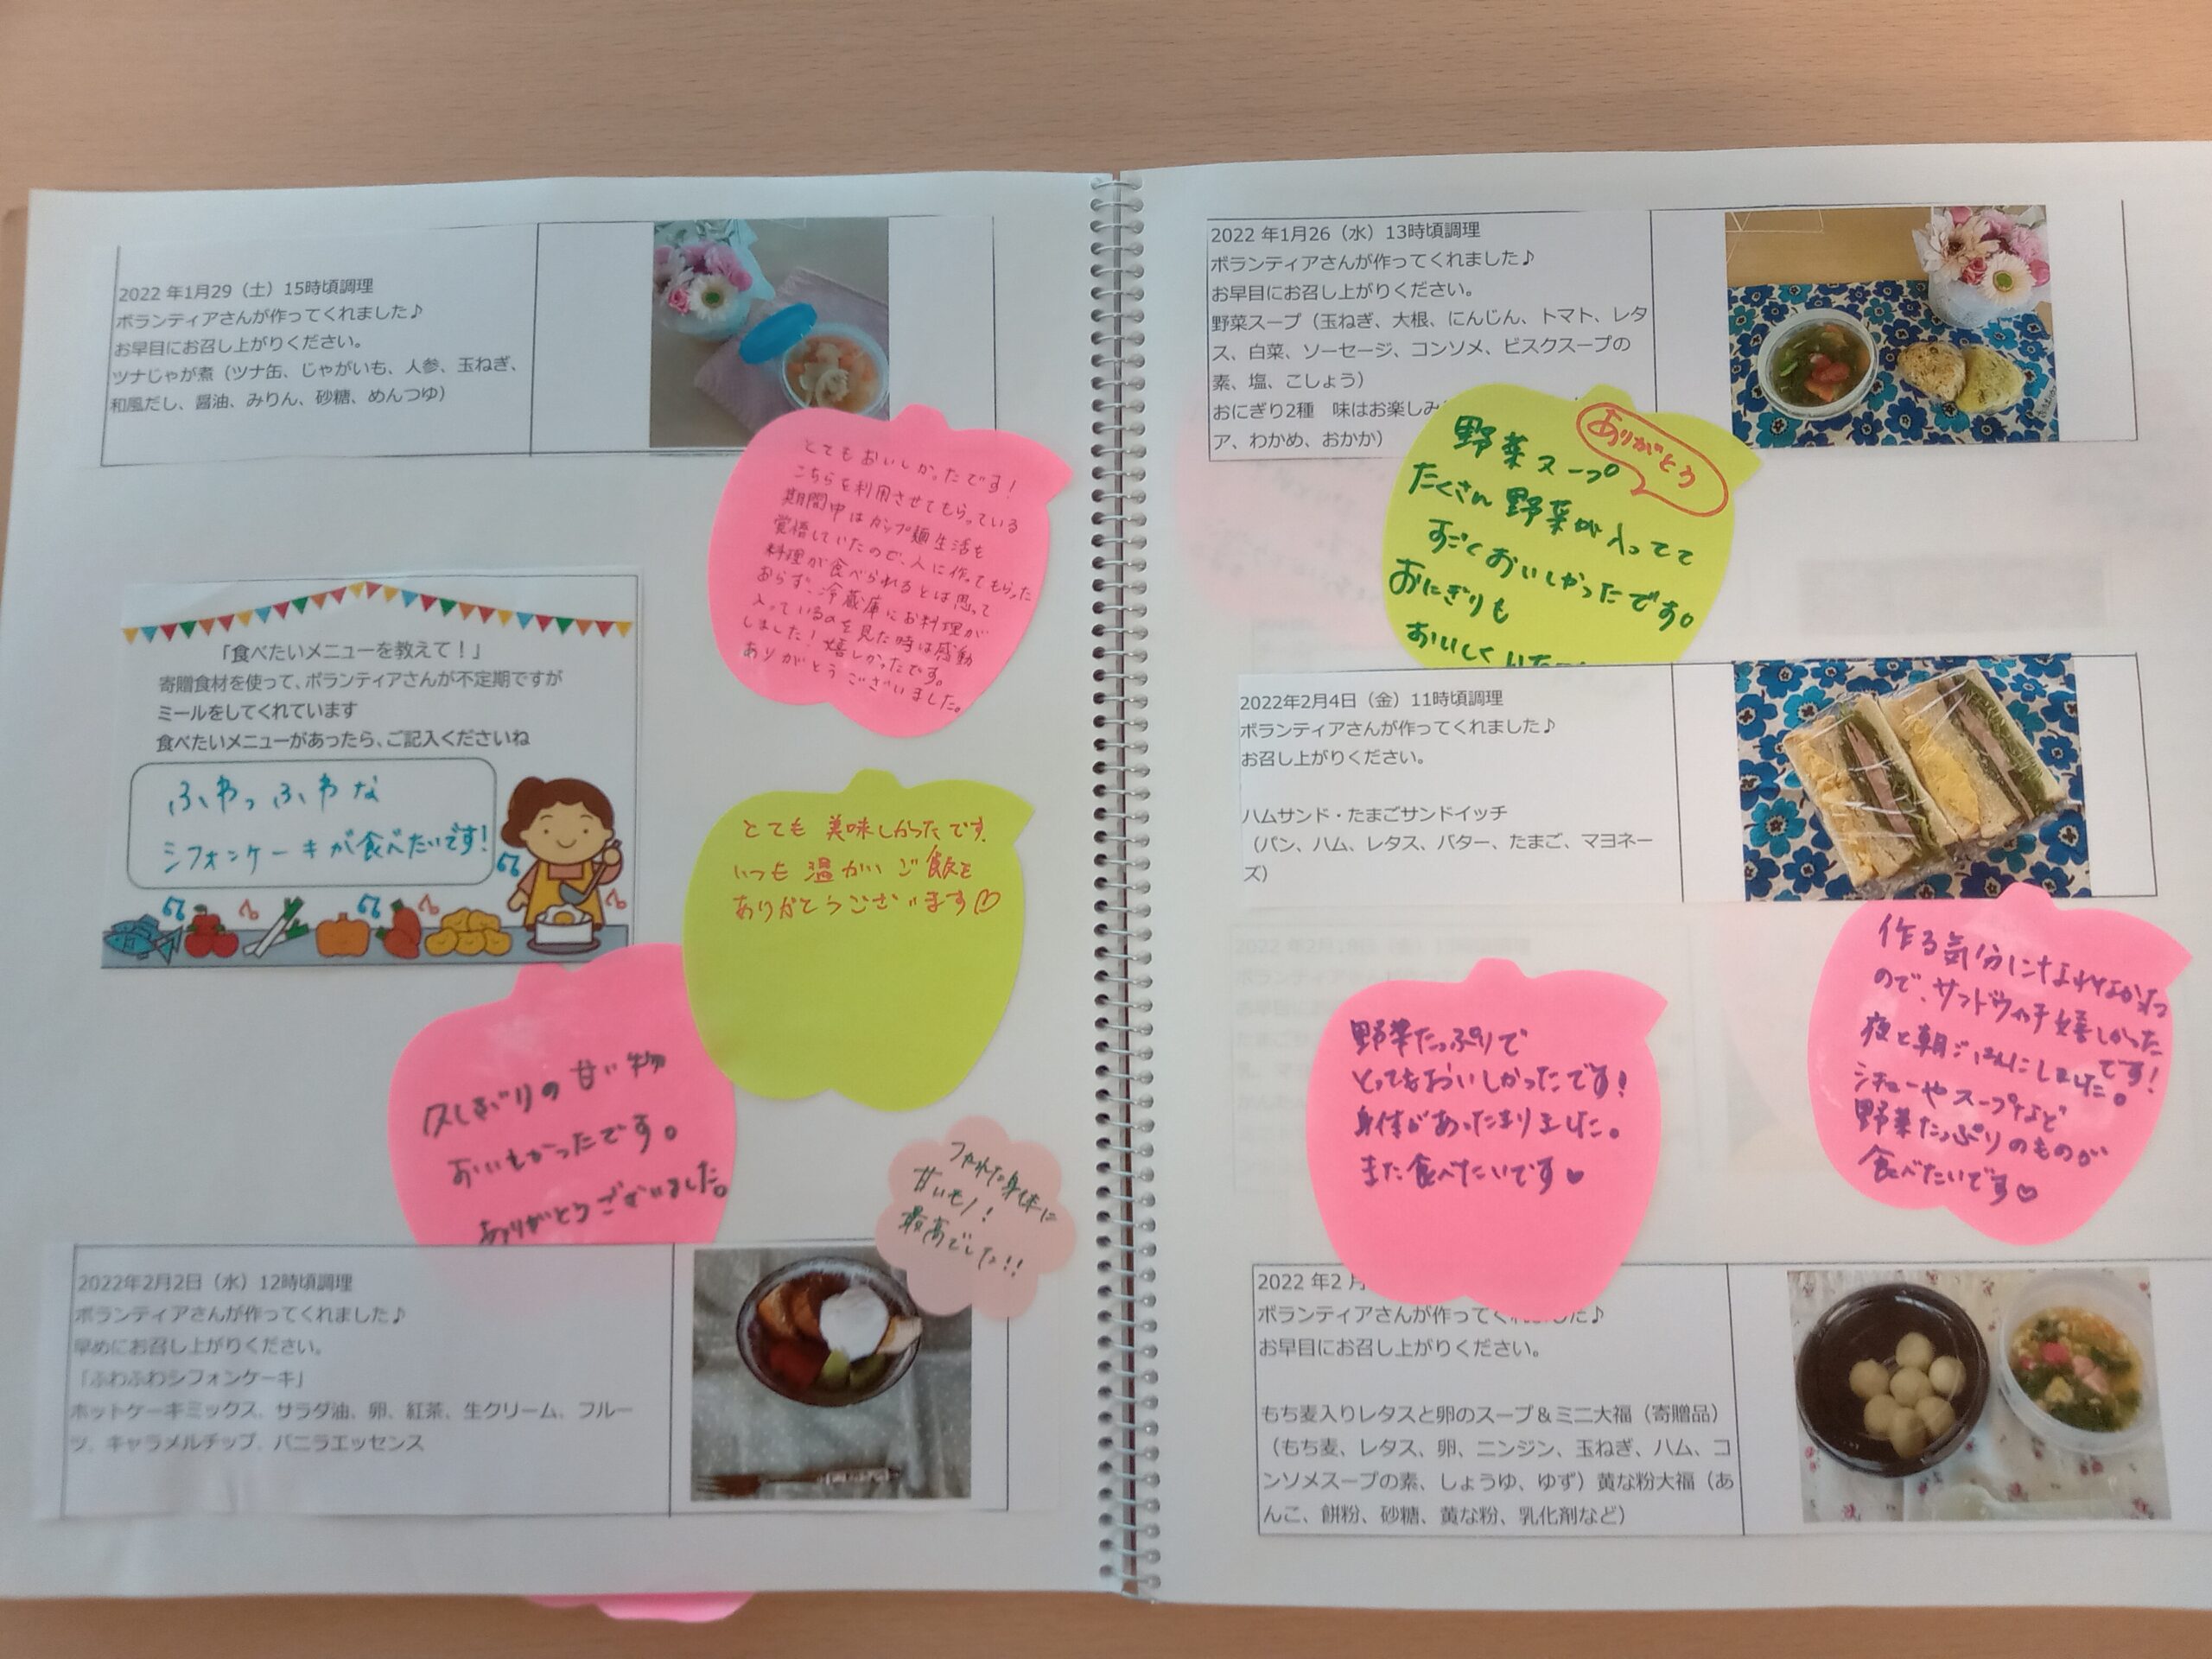 2022 年1月29（土）15時頃調理
ボランティアさんが作ってくれました♪
お早目にお召し上がりください。
ツナじゃが煮（ツナ缶、じゃがいも、人参、玉ねぎ、
和風だし、醤油、みりん、砂糖、めんつゆ）
とてもおいしかったです！
こちらを利用させてもらっている
期間中はカップ麺生活も
覚悟していたので、人に作ってもらった
料理が食べられるとは思って
おらず、冷蔵庫にお料理が
入っているのを見た時は感動
しました！嬉しかったです。
ありがとうございました。
「食べたいメニューを教えて！」
寄贈食材を使って、ボランティアさんが不定期ですが
ミールをしてくれています
食べたいメニューがあったら、ご記入くださいね
ふわっふわな
シフォンケーキが食べたいです!
とても美味しかったです。
いつも温かいご飯を
ありがとうございます♡
久しぶりの甘い物
おいしかったです。
ありがとうございました。
つかれた身体に
甘いもノ!
最高でした!!
2022年2月2日（水）12時頃調理
ボランティアさんが作ってくれました♪
早めにお召し上がりください。
「ふわふわシフォンケーキ」
ホットケーキミックス、サラダ油、卵、紅茶、生クリーム、フルー
ツ、キャラメルチップ、バニラエッセンス
2022 年1月26（水）13時頃調理
ボランティアさんが作ってくれました♪
お早目にお召し上がりください。
野菜スープ（玉ねぎ、大根、にんじん、トマト、レタ
ス、白菜、ソーセージ、コンソメ、ビスクスープの
素、塩、こしょう）
おにぎり2種　味はお楽しみ
ア、わかめ、おかか）
ありがとう
野菜スープ
たくさん野菜が入ってて
すごくおいしかったです。
おにぎりも
おいしく
2022年2月4日（金）11時頃調理
ボランティアさんが作ってくれました♪
お召し上がりください。
ハムサンド・たまごサンドイッチ
（パン、ハム、レタス、バター、たまご、マヨネー
ズ）
野菜たっぷりで
とってもおいしかったです!
身体があったまりました。
また食べたいです♥
作る気分になれなかった
ので、サンドウィッチ嬉しかった
です!
夜と朝ごはんにしました。
シチューやスープなど
野菜たっぷりのものが
食べたいです♡
2022 年2月
ボランティアさんが作ってくれました♪
お早目にお召し上がりください。
もち麦入りレタスと卵のスープ＆ミニ大福（寄贈品）
（もち麦、レタス、卵、ニンジン、玉ねぎ、ハム、コ
ンソメスープの素、しょうゆ、ゆず）黄な粉大福（あ
んこ、餅粉、砂糖、黄な粉、乳化剤など）